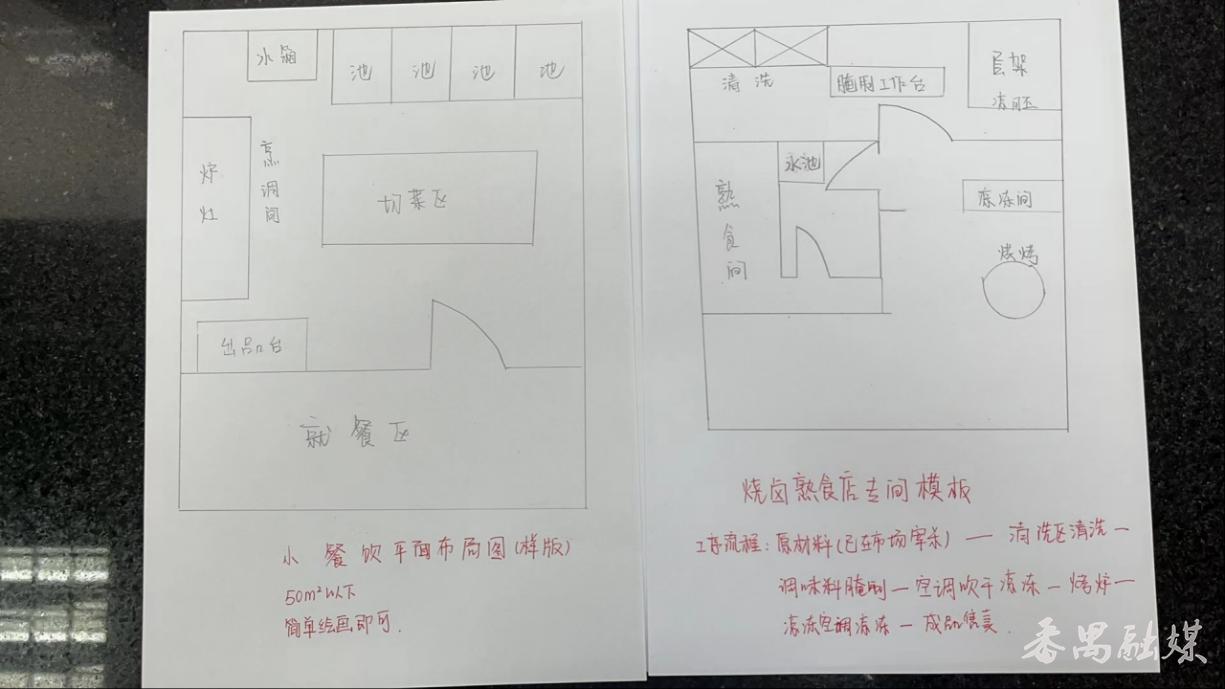 冰箱
池
池
池
池
炉灶
烹调间
切菜区
出品台
就餐区
小餐饮平面布局图(样版)
50m²以下
简单绘画即可.
清洗
腌制工作台
层架
冻
水池
熟食间
冻间
烧烤
烧卤熟食店专间模板
工序流程:原材料(已在市场宰杀)—清洗区清洗—
调味料腌制—空调吹干冻—烤炉—
冻空调冻—成品售卖.
番禺融媒